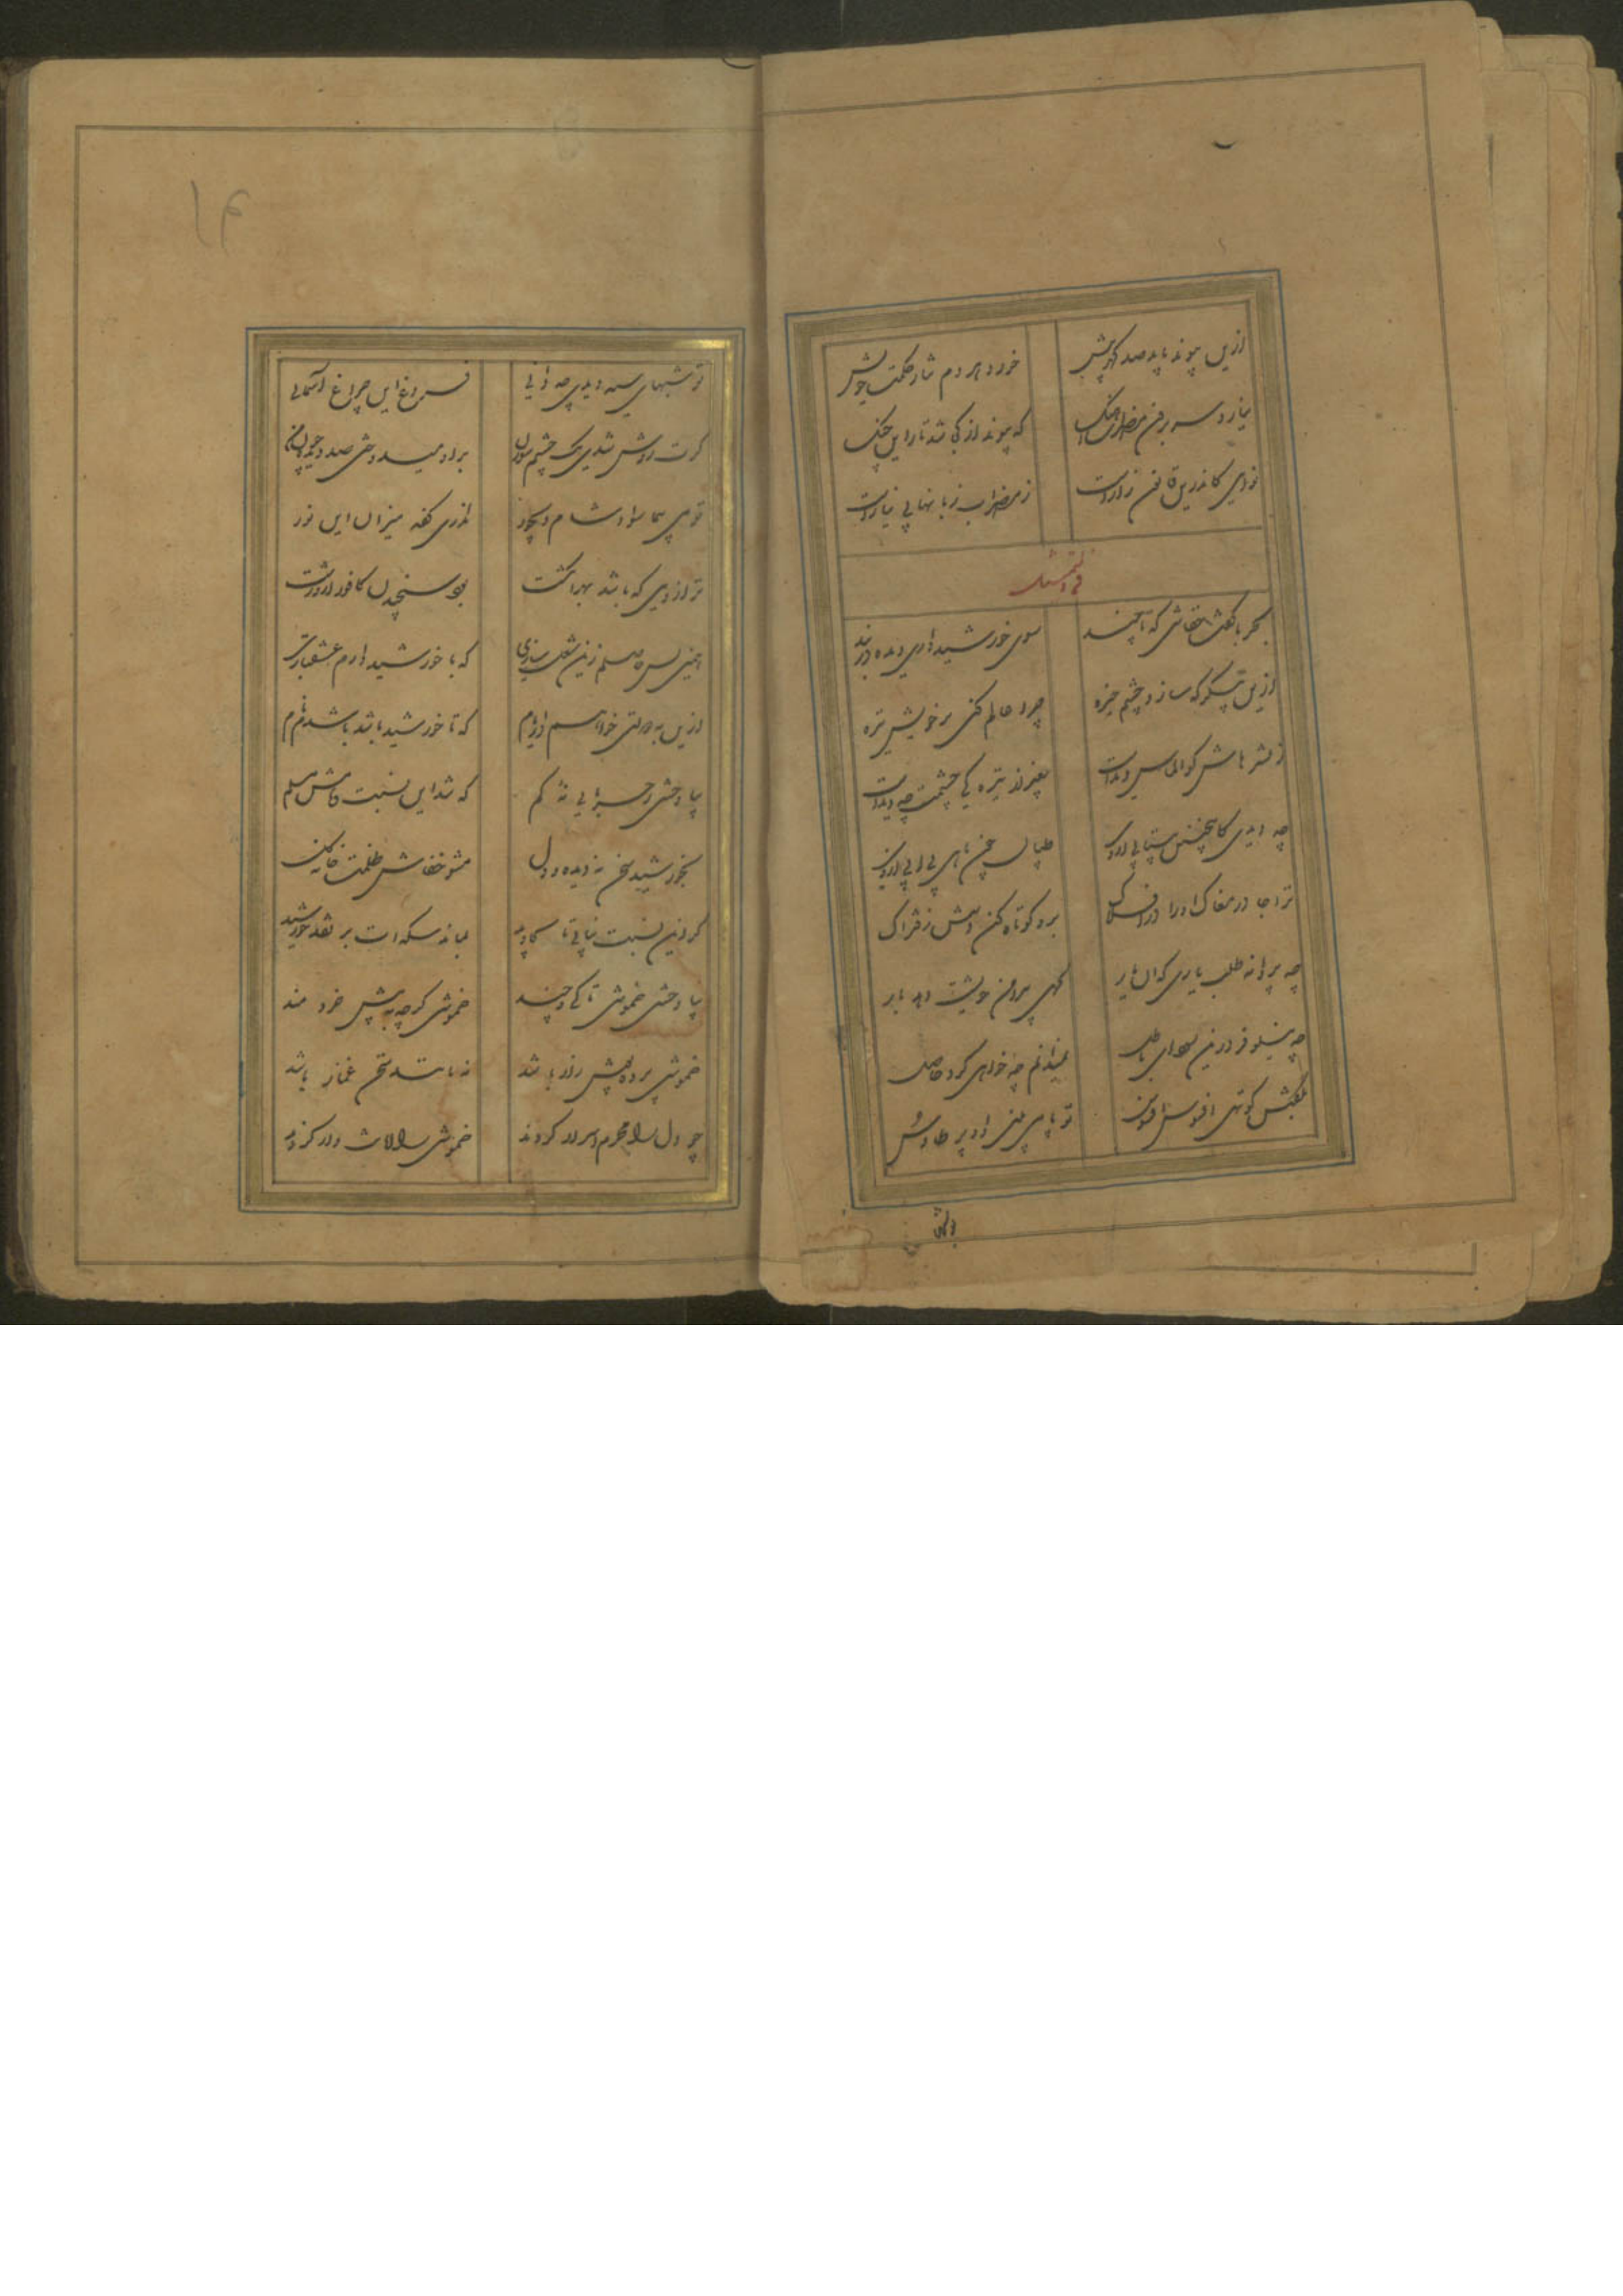 ازین پیوند باید صد گهر بیش
خورد هر دم نثار حکمت خویش
نیارد سر برون مضراب آهنگ
که پیوند از کی شد تار این چنگ
نوایی کاندرین قانون راز است
ز مضراب زبانها بی نیاز است
فی التمثیل
بحربا گفت خفاشی که تا چند
سوی خورشید داری دیده در بند
ازین پیکر که سازد چشم خیره
چرا عالم کنی بر خویش تیره
ز نشترهاش کو الماس دیدست
بغیر از تیرگی چشمت چه دیدست
چه دیدی کاینچنین بیتابی از وی
طپان چون ماهی بی آبی از وی
ترا جا در مغاک او را در افلاک
برو کوتاه کن دستش ز فتراک
چه پروانه طلب یاری که آن یار
گهی پیرامن خویشت دهد بار
چه نیلوفر درین سودای باطل
نمیدانم چه خواهی کرد حاصل
بگفتش کوتهی افسوس افسوس
تو پا می بینی او پر طاوس
تو شبهای
۱۴
تو شبهای سیه دیدی چه دانی
فروغ این چراغ آسمانی
گرت روشن شدی یک چشم سوزن
برو میدوختی صد دیده چون من
تو می پیما سواد شام دیجور
نداری کفه میزان این نور
ترازویی که باشد بهر انگشت
بود سنجیدن کافور ازو زشت
همین بس حاصلم زین شغل سازی
که با خورشید دارم عشقبازی
ازین به دولتی خواهم در ایام
که تا خورشید باشد باشدم نام
بیا وحشی ز حربایی نه کم
که شد این نسبت فاشش مسلم
بخورشید سخن نه دیده دل
مشو خفاش ظلمت خانه گل
گر زین نسبت بیابی تا بجاوید
بماند سکه ات بر نقد خورشید
بیا وحشی خموشی تا کی و چند
خموشی گرچه به پیش خردمند
خموشی پرده پوش راز باشد
نه مانند سخن غماز باشد
چو دل را محرم اسرار کردند
خموشی را امانت دار کردند